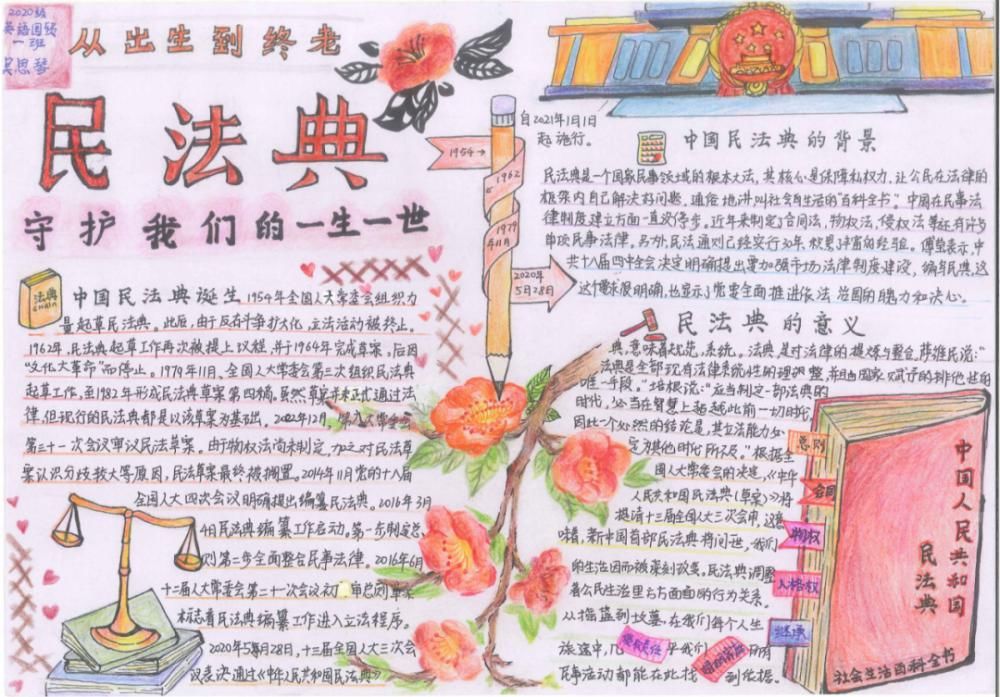 2020级
英语国贸
一班
吴思琴
从出生到终老
民法典
守护我们的一生一世
自2021年1月1日
起施行。
1954→
1962
1979
年11月
2020年
5月28日
法典
中国民法典诞生 1954年全国人大常委会组织力
量起草民法典。此后,由于反右斗争扩大化,立法活动被终止。
1962年,民法典起草工作再次被提上议程,并于1964年完成草案。后因
"文化大革命"而停止。1979年11月、全国人大常委会第三次组织民法典
起草工作,至1982年形成民法典草案第四稿。虽然草案并未正式通过法
律,但现行的民法典都是以该草案为基础。2002年12月,第九人大常委会
第三十一次会议审议民法草案。由于物权法尚未制定,加之对民法草
案认识分歧较大等原因,民法草案最终被搁置。2014年11月党的十八届
全国人大四次会议明确提出编纂民法典。2016年3月
4日民法典编纂工作启动。第一步制定总
则第二步全面整合民事法律。2016年6月
十二届人大常委会第二十一次会议初审总则草案
标志着民法典编纂工作进入立法程序。
2020年5月28日,十三届全国人大三次会
议表决通过《中华人民共和国民法典》
中国民法典的背景
民法典是一个国家民事领域的根本大法,其核心是保障私权力,让公民在法律的
框架内自己解决好问题,通俗地讲叫社会生活的"百科全书"。中国在民事法
律制度建立方面一直没停步。近年来制定了合同法,物权法,侵权法等还有许多
单项民事法律。另外,民法通则已经实行30年,积累了丰富的经验。傅莹表示,中
共十八届四中全会决定明确提出要加强市场法律制度建设,编纂民典,这
这个要求很明确,也显示了党要全面推进依法治国的魄力和决心。
民法典的意义
典,意味着规范,系统。法典是对法律的提炼与整合,萨维民说:"
法典是全部现有法律系统性的理调整,并且由国家赋予的排他性的
唯一手段。"培根说:"应当制定一部法典的
时代,必当在智慧上超越此前一切时代,
因此一个必然的结论是,其立法能力如
定为其他时代所不及。"根据全
国人大常委会的决定,《中华
人民共和国民法典(草案)》将
提请十三届全国人大三次会审,这意
味着,新中国首部民法典将问世,我们
的生活因而被深刻改变。民法典调整
着公民生活里方方面面的行为关系。
从摇篮到坟墓,在我们每个人生
旅途中,几 侵权责任 乎我们 婚姻家庭 所有
民事活动都能在此找到依据。
总则
合同
物权
人格权
继承
中国人民共和国
民法典
社会生活百科全书